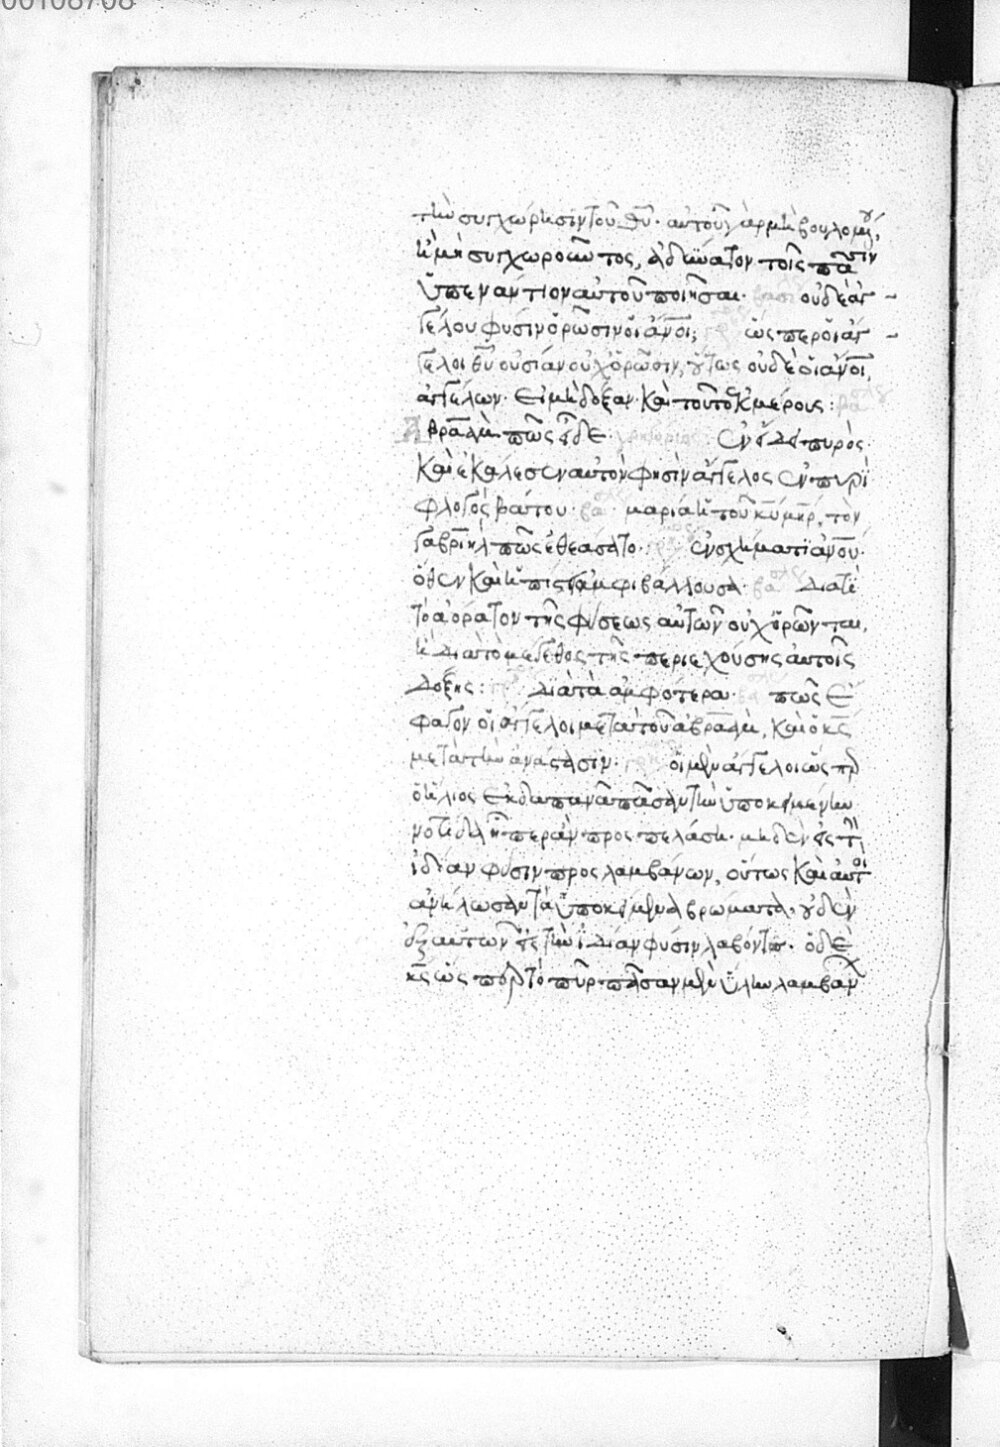 00108708
τὴν συγχώρησιν τοῦ θυ· αὐτοῦ γὰρ μὴ βουλομένου,
ἢ μὴ συγχωροῦντος, ἀδύνατον τοῖς πᾶσιν
ὑπεναντίον αὐτοῦ ποιῆσαι· βασι οὐδὲ ἀγ-
γέλου φύσιν ὁρῶσιν οἱ ἄνοι; ὥσπερ οἱ ἄγ-
γελοι θυ οὐσίαν οὐχ ὁρῶσιν, οὕτως οὐδὲ οἱ ἄνοι,
ἀγγέλων· εἰ μὴ δόξαν· καὶ τοῦτο ἐκ μέρους: βα
Ἀβραὰμ πῶς εἶδε· ἐν εἴδει πυρὸς·
καὶ ἐκάλεσεν αὐτὸν φησὶν ἄγγελος ἐν πυρὶ
φλογὸς βάτου· βα· μαρία ἡ τοῦ κυ μηρ, τὸν
γαβριὴλ πῶς ἐθεάσατο· ἐν σχήματι ἀνου·
ὅθεν καὶ ἠπίστει ἀμφιβάλλουσα· βα διατὶ
τὸ ἀόρατον τῆς φύσεως αὐτῶν οὐχ ὁρῶνται,
ἢ διὰ τὸ μέγεθος τῆς περιεχούσης αὐτοῖς
δόξης: διὰ τὰ ἀμφότερα· βα πῶς ἔ-
φαγον οἱ ἄγγελοι μετὰ τοῦ ἀβραάμ, καὶ ὁ κς
μετὰ τὴν ἀνάστασιν· οἱ μὲν ἄγγελοι ὥσπερ
ὁ ἥλιος ἐκδαπανᾷ πᾶσαν τὴν ὑποκειμένην
νοτίδα προσπελάσει· μηδὲν εἰς τὴν
ἰδίαν φύσιν προσλαμβάνων, οὕτως καὶ αὐτοὶ
ἀνήλωσαν τὰ ὑποκείμενα βρώματα, οὐδὲν
ἐξ αὐτῶν εἰς τὴν ἰδίαν φύσιν λαβόντες· ὁ δὲ
κς ὥσπερ τὸ πῦρ πᾶσαν μὲν ὕλην λαμβάν